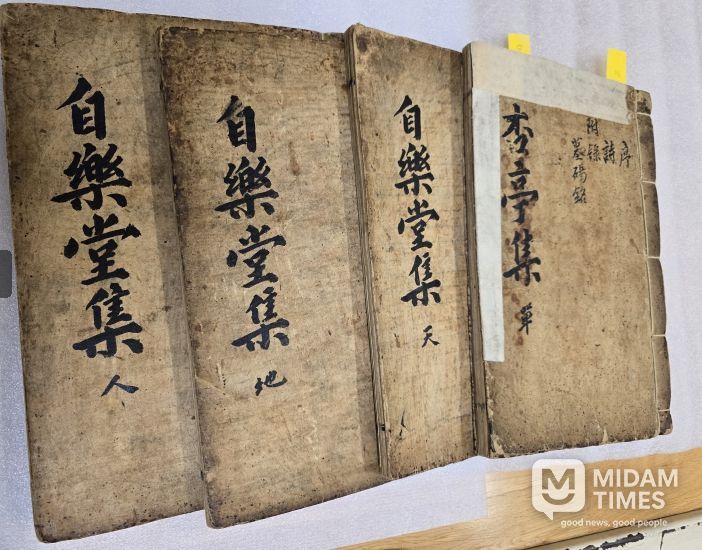 序
詩
附錄
墓碣銘
杏亭集
自樂堂集 天
自樂堂集 地
自樂堂集 人
MIDAM
TIMES
good news, good people